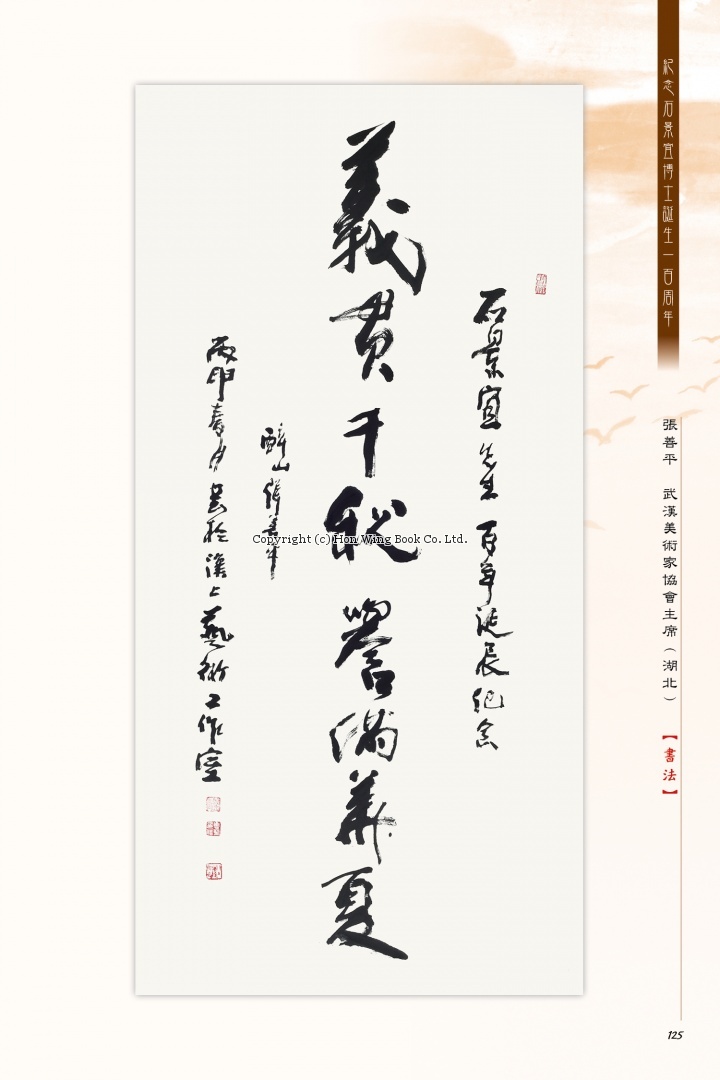 紀念石景宜博士誕生一百周年
張善平 武漢美術家協會主席（湖北）
【書法】
石景宜先生百年誕辰紀念
義貫千秋譽滿華夏
醉山張善平
丙申春月書於漢上藝術工作室
Copyright (c) Hon Wing Book Co. Ltd.
125